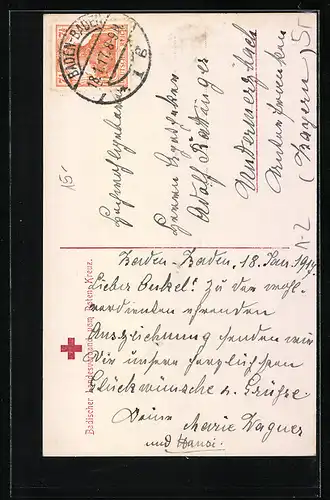 BADEN-BADEN
18.1.17. 8-9N
1 B
Hochwohlgeboren
Herrn
Adolf
Untermerzbach
Unterfranken
(Bayern)
15.-
Badischer Landesverein vom Roten Kreuz.
Baden-Baden, 18. Jan. 1917.
Lieber Onkel! Zu der wohl-
verdienten ehrenden
Auszeichnung senden wir
Dir unsere herzlichsten
Glückwünsche u. Grüße
Deine
Marie Wagner
und Hansi.